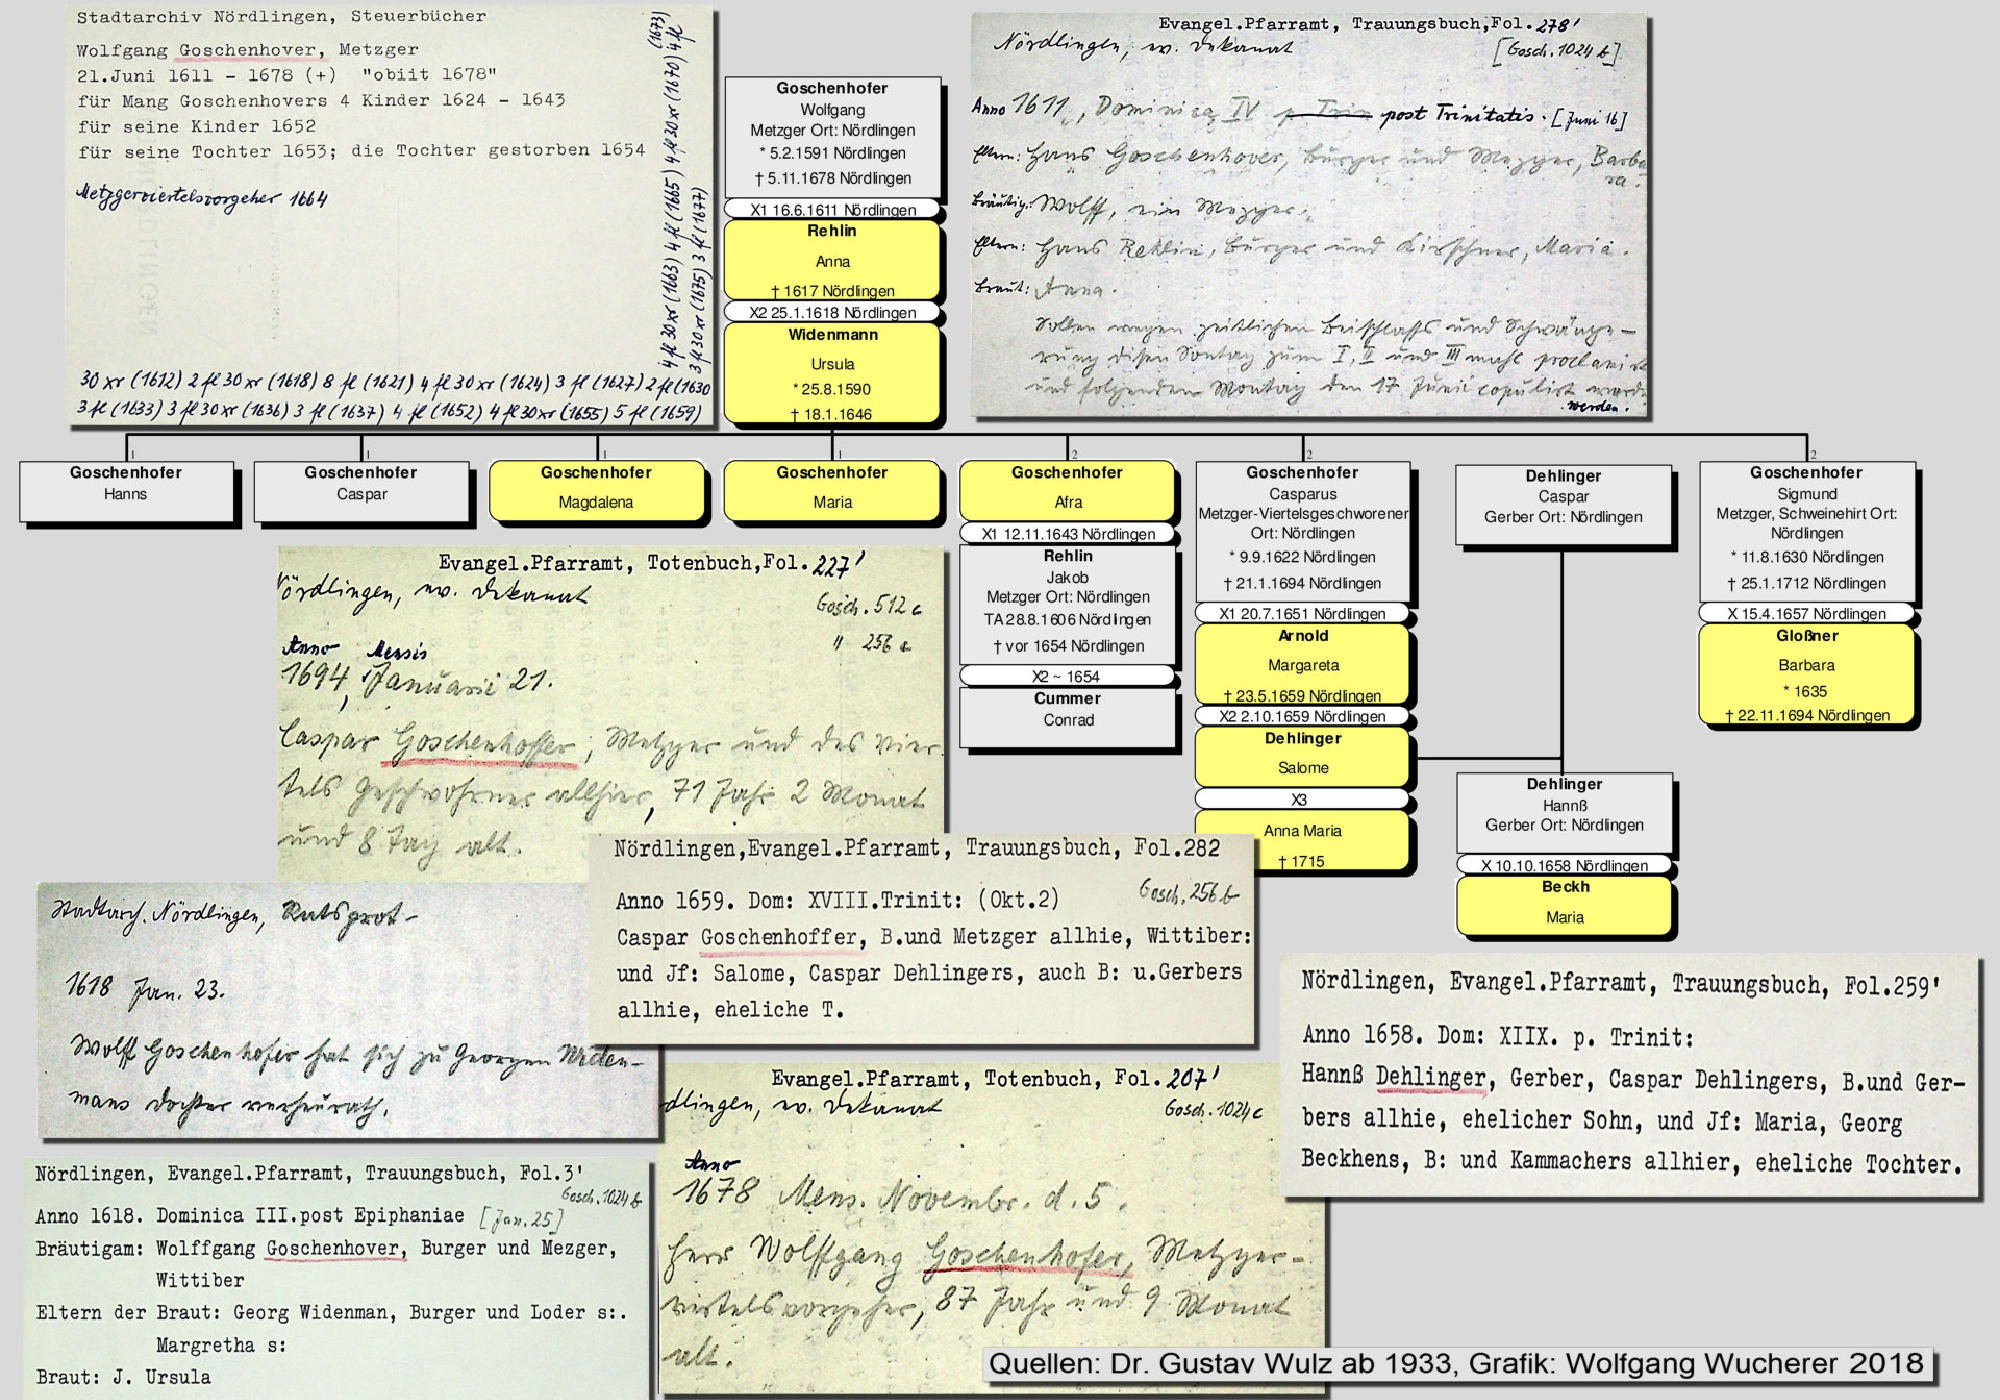 Stadtarchiv Nördlingen, Steuerbücher
Wolfgang Goschenhover, Metzger
21.Juni 1611 - 1678 (+) "obiit 1678"
für Mang Goschenhovers 4 Kinder 1624 - 1643
für seine Kinder 1652
für seine Tochter 1653; die Tochter gestorben 1654
Metzgerviertelsvorgeher 1664
30 xr (1612) 2 fl 30 xr (1618) 8 fl (1621) 4 fl 30 xr (1624) 3 fl (1627) 2 fl (1630
3 fl (1633) 3 fl 30 xr (1636) 3 fl (1637) 4 fl (1652) 4 fl 30 xr (1655) 5 fl (1659)
4 fl 30 xr (1663) 4 fl (1665) 4 fl 30 xr (1670) 4 fl (1673)
3 fl 30 xr (1675) 3 fl (1677)
Goschenhofer
Wolfgang
Metzger Ort: Nördlingen
* 5.2.1591 Nördlingen
† 5.11.1678 Nördlingen
X1 16.6.1611 Nördlingen
Rehlin
Anna
† 1617 Nördlingen
X2 25.1.1618 Nördlingen
Widenmann
Ursula
* 25.8.1590
† 18.1.1646
Evangel.Pfarramt, Trauungsbuch,Fol. 278'
Nördlingen, ev. Dekanat
[Gosch. 1024 b]
Anno 1611, Dominica IV p. Trin post Trinitatis. [Juni 16]
Eltern: Hans Goschenhover, Burger und Mezger, Barba
ra.
Bräutig: Wolff, ein Mezger.
Eltern: Hans Rehlin, Burger und Kirschner, Maria.
Braut: Anna.
Sollen wegen zeitlichen Beischlaffs und Schwänge-
rung disen Sontag zum I, II und III mahl proclamirt
und folgenden Montag den 17 Junii copulirt
werden.
1
1
1
1
2
2
2
Goschenhofer
Hanns
Goschenhofer
Caspar
Goschenhofer
Magdalena
Goschenhofer
Maria
Goschenhofer
Afra
X1 12.11.1643 Nördlingen
Rehlin
Jakob
Metzger Ort: Nördlingen
TA 28.8.1606 Nördlingen
† vor 1654 Nördlingen
X2 ~ 1654
Cummer
Conrad
Goschenhofer
Casparus
Metzger-Viertelsgeschworener
Ort: Nördlingen
* 9.9.1622 Nördlingen
† 21.1.1694 Nördlingen
X1 20.7.1651 Nördlingen
Arnold
Margareta
† 23.5.1659 Nördlingen
X2 2.10.1659 Nördlingen
Dehlinger
Salome
X3
Anna Maria
† 1715
Dehlinger
Caspar
Gerber Ort: Nördlingen
Dehlinger
Hannß
Gerber Ort: Nördlingen
X 10.10.1658 Nördlingen
Beckh
Maria
Goschenhofer
Sigmund
Metzger, Schweinehirt Ort:
Nördlingen
* 11.8.1630 Nördlingen
† 25.1.1712 Nördlingen
X 15.4.1657 Nördlingen
Gloßner
Barbara
* 1635
† 22.11.1694 Nördlingen
Evangel.Pfarramt, Totenbuch,Fol. 227'
Nördlingen, ev. Dekanat
Gosch. 512 c
" 256 c
Anno Mensis
1694, Januarii 21.
Caspar Goschenhoffer, Metzger und des Vier-
tels Geschwohrner allhier, 71 Jahr 2 Monat
und 8 Tag alt.
Nördlingen,Evangel.Pfarramt, Trauungsbuch, Fol.282
Gosch. 256 b
Anno 1659. Dom: XVIII.Trinit: (Okt.2)
Caspar Goschenhoffer, B.und Metzger allhie, Wittiber:
und Jf: Salome, Caspar Dehlingers, auch B: u.Gerbers
allhie, eheliche T.
Stadtarch. Nördlingen, Ratsprot-
1618 Jan. 23.
Wolff Goschenhofer hat sich zu Georgen Widen-
mans Dochter verheurath.
Nördlingen, Evangel.Pfarramt, Trauungsbuch, Fol.259'
Anno 1658. Dom: XIIX. p. Trinit:
Hannß Dehlinger, Gerber, Caspar Dehlingers, B.und Ger-
bers allhie, ehelicher Sohn, und Jf: Maria, Georg
Beckhens, B: und Kammachers allhier, eheliche Tochter.
Nördlingen, Evangel.Pfarramt, Trauungsbuch, Fol.3'
Gosch. 1024 b
Anno 1618. Dominica III.post Epiphaniae [Jan. 25]
Bräutigam: Wolffgang Goschenhover, Burger und Mezger,
Wittiber
Eltern der Braut: Georg Widenman, Burger und Loder s:.
Margretha s:
Braut: J. Ursula
Evangel.Pfarramt, Totenbuch, Fol. 207'
dlingen, ev. Dekanat
Gosch. 1024 c
Anno
1678 Mens. Novembr. d. 5.
Herr Wolffgang Goschenhofer, Metzger-
viertelsvorgeher, 87 Jahr und 9 Monat
alt.
Quellen: Dr. Gustav Wulz ab 1933, Grafik: Wolfgang Wucherer 2018